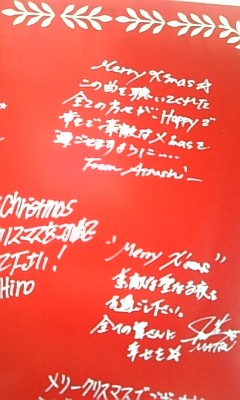 Merry X'mas☆
この曲を聴いてくれた
全ての方々が…Happyで
幸せで素敵なX'masを
過ごせますように…
From Atsushi
Christmas
下さい!
Hiro
"Merry X'mas"
素敵な聖なる夜を
お過ごし下さい。
全ての皆さんに
幸せを☆
メリークリスマスで